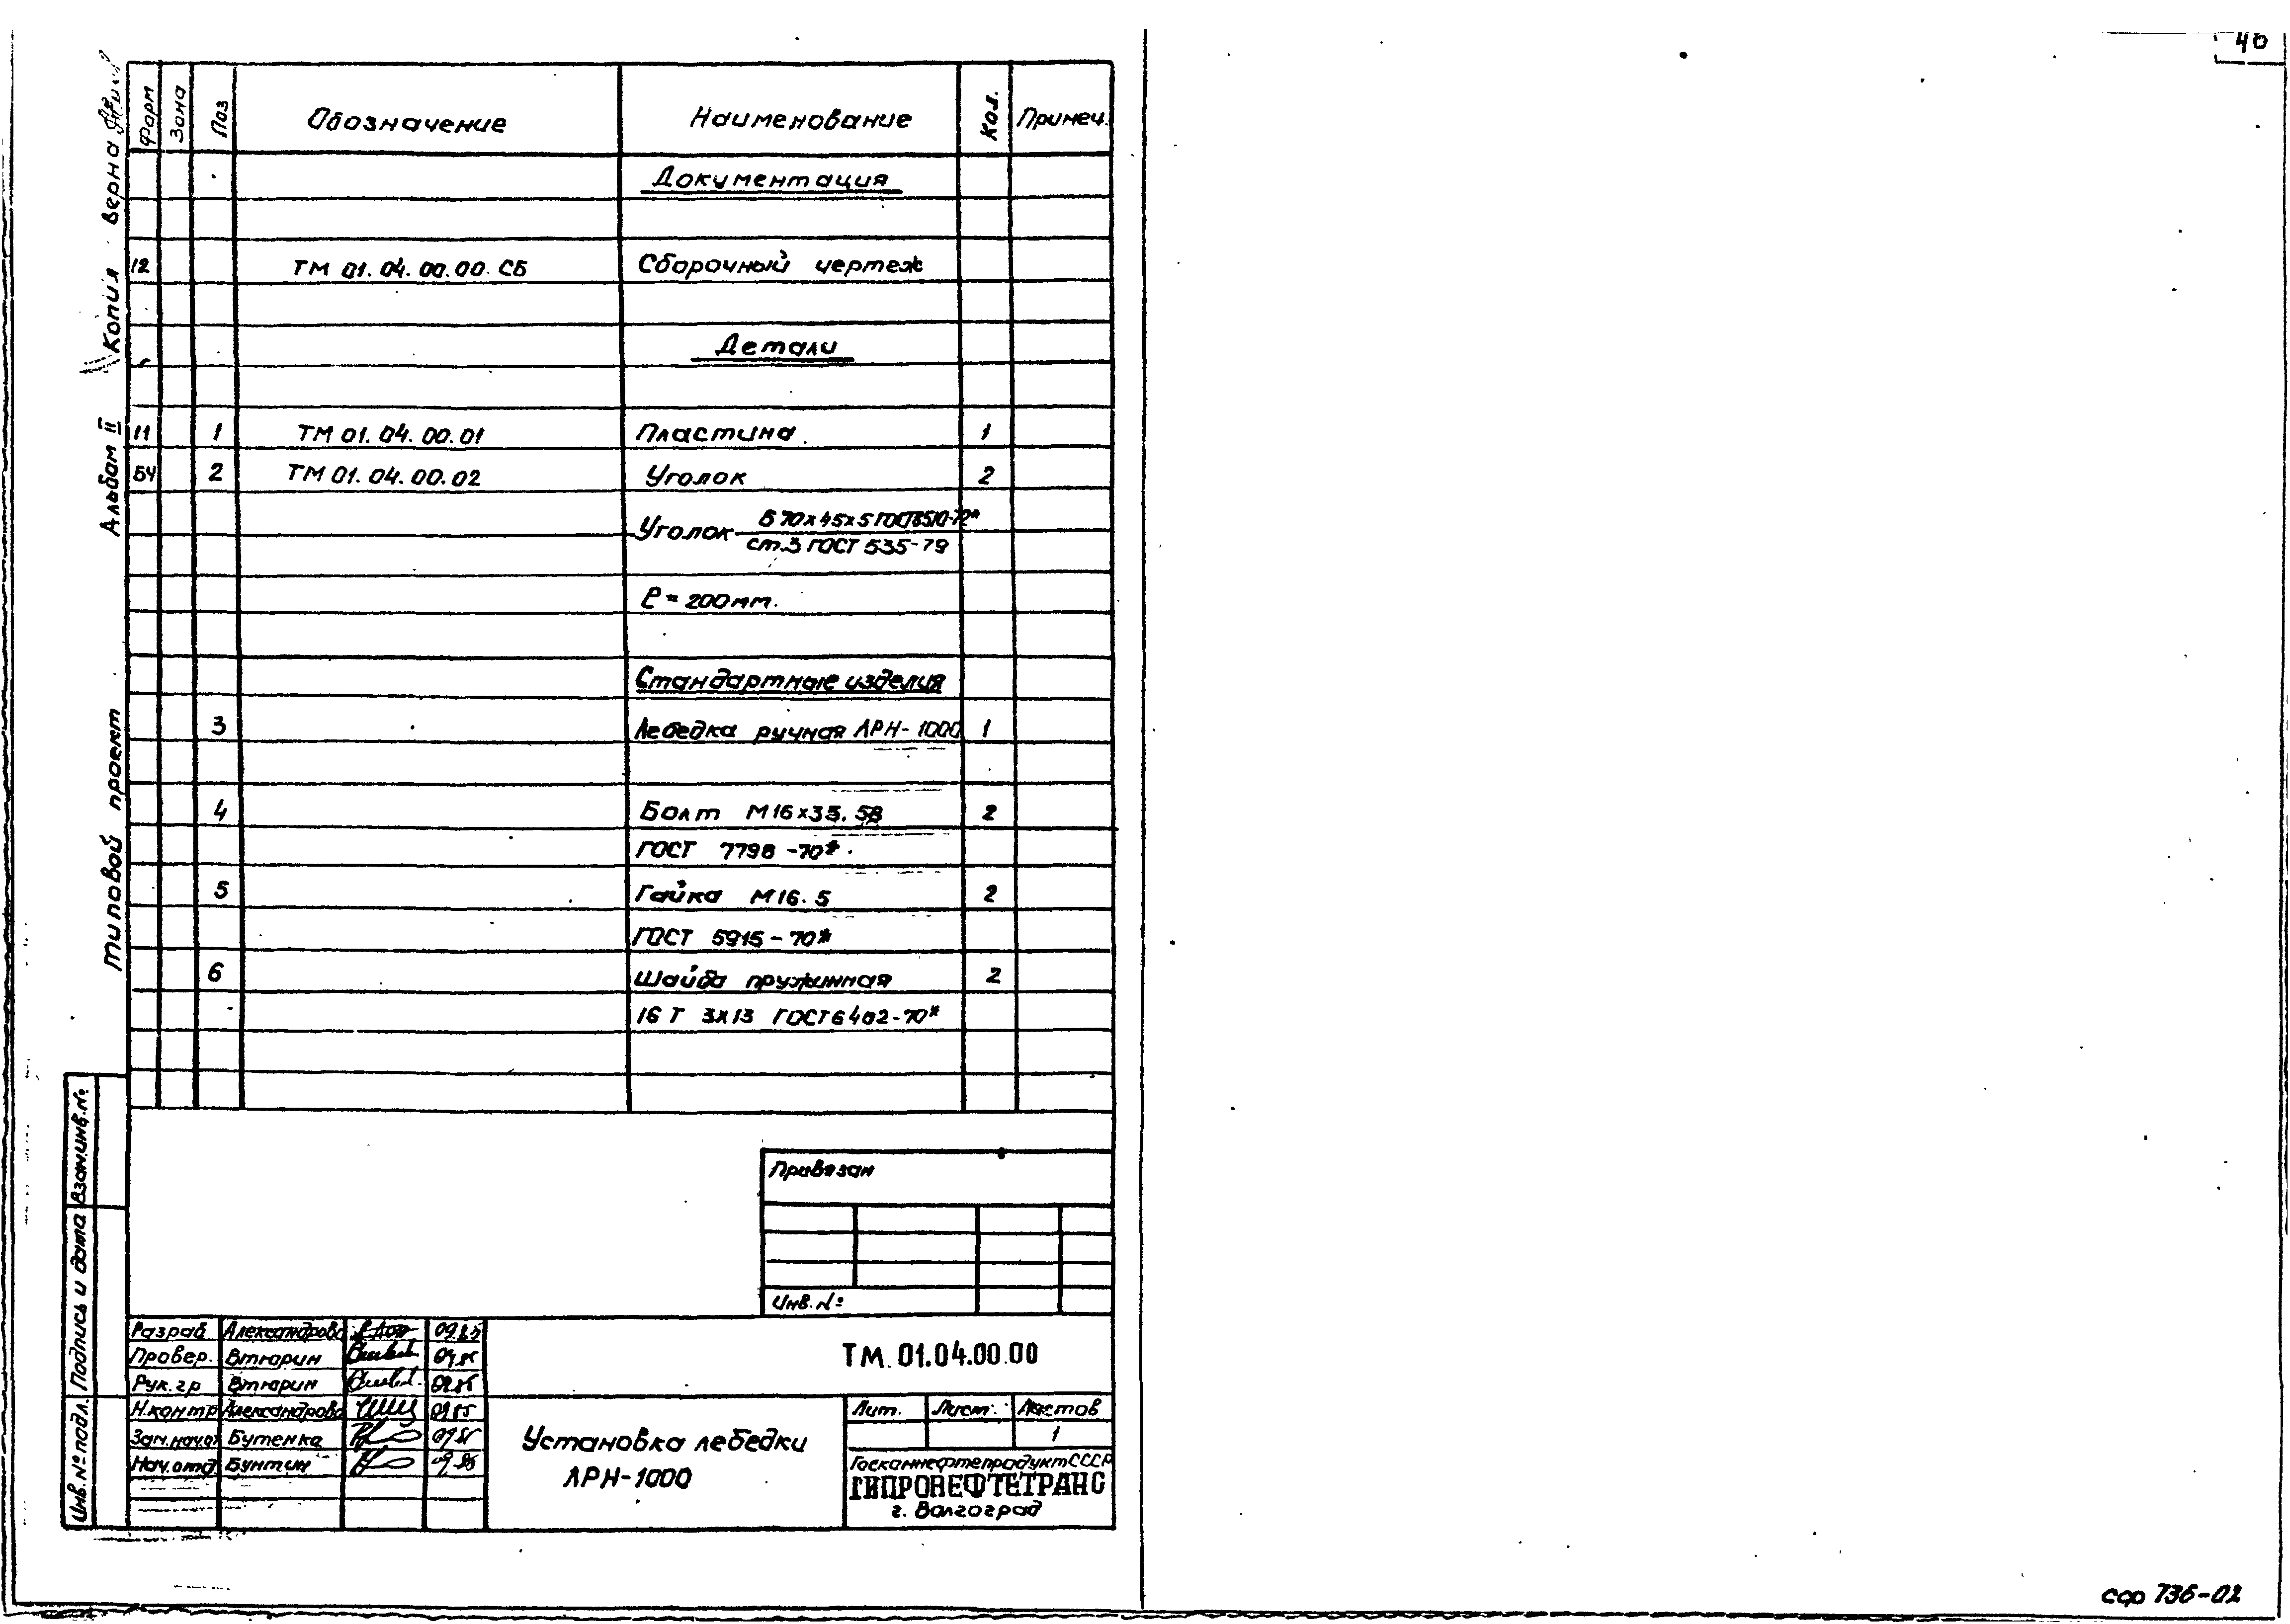 40
Форм Зона Поз Обозначение Наименование Кол. Примеч.
Документация
12 ТМ 01.04.00.00.СБ Сборочный чертеж
Детали
11 1 ТМ 01.04.00.01 Пластина 1
БЧ 2 ТМ 01.04.00.02 Уголок 2
Уголок Б 70х45х5 ГОСТ 8510-72*
ст.3 ГОСТ 535-79
ℓ = 200мм.
Стандартные изделия
3 Лебедка ручная ЛРН-1000 1
4 Болт М16х35.58 2
ГОСТ 7798-70*
5 Гайка М16.5 2
ГОСТ 5915-70*
6 Шайба пружинная 2
16 Т 3х13 ГОСТ 6402-70*
Типовой проект Альбом II Копия верна
Взам.инв.№
Подпись и дата
Инв.№ подл.
Привязан
Инв.№
Разраб Александрова 09.85
Провер. Втюрин 09.85
Рук.гр Втюрин 09.85
Н.контр Александрова 09.85
Зам.нач.от Бутенка 09.85
Нач.отд Бунтин 09.85
ТМ 01.04.00.00
Установка лебедки
ЛРН-1000
Лит. Лист. Листов
1
Госкомнефтепродукт СССР
ГИПРОНЕФТЕТРАНС
г. Волгоград
сф 736-02